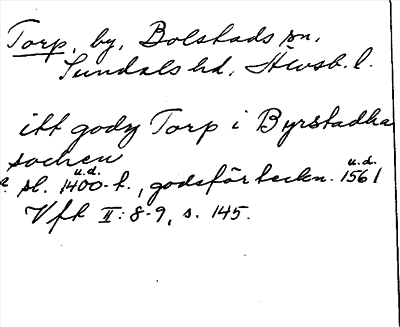 Torp, by, Bolstads sn,
Sundals hd, Älvsb. l.
itt godz Torp i Byrstadha
sochen
u.d. u.d.
a. sl. 1400-t., godsförteckn. 1561
Vfk II: 8-9, s. 145.